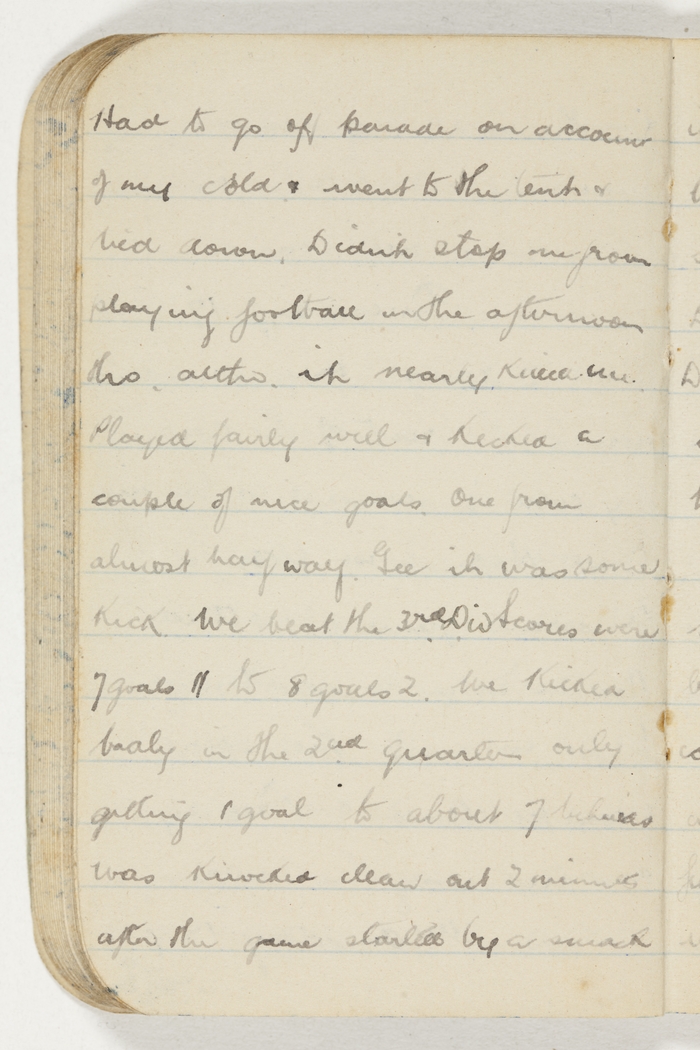 Had to go off parade on account
of my cold & went to the tent &
laid down. Didn't stop me from
playing football in the afternoon
tho. altho. it nearly killed me.
Played fairly well & kicked a
couple of nice goals. One from
almost half way. Gee it was some
kick We beat the 3rd Div Scores were
7 goals 11 to 8 goals 2. We kicked
badly in the 2nd quarter only
getting 1 goal to about 7 behinds
was knocked clean out 2 minutes
after the game started by a smack